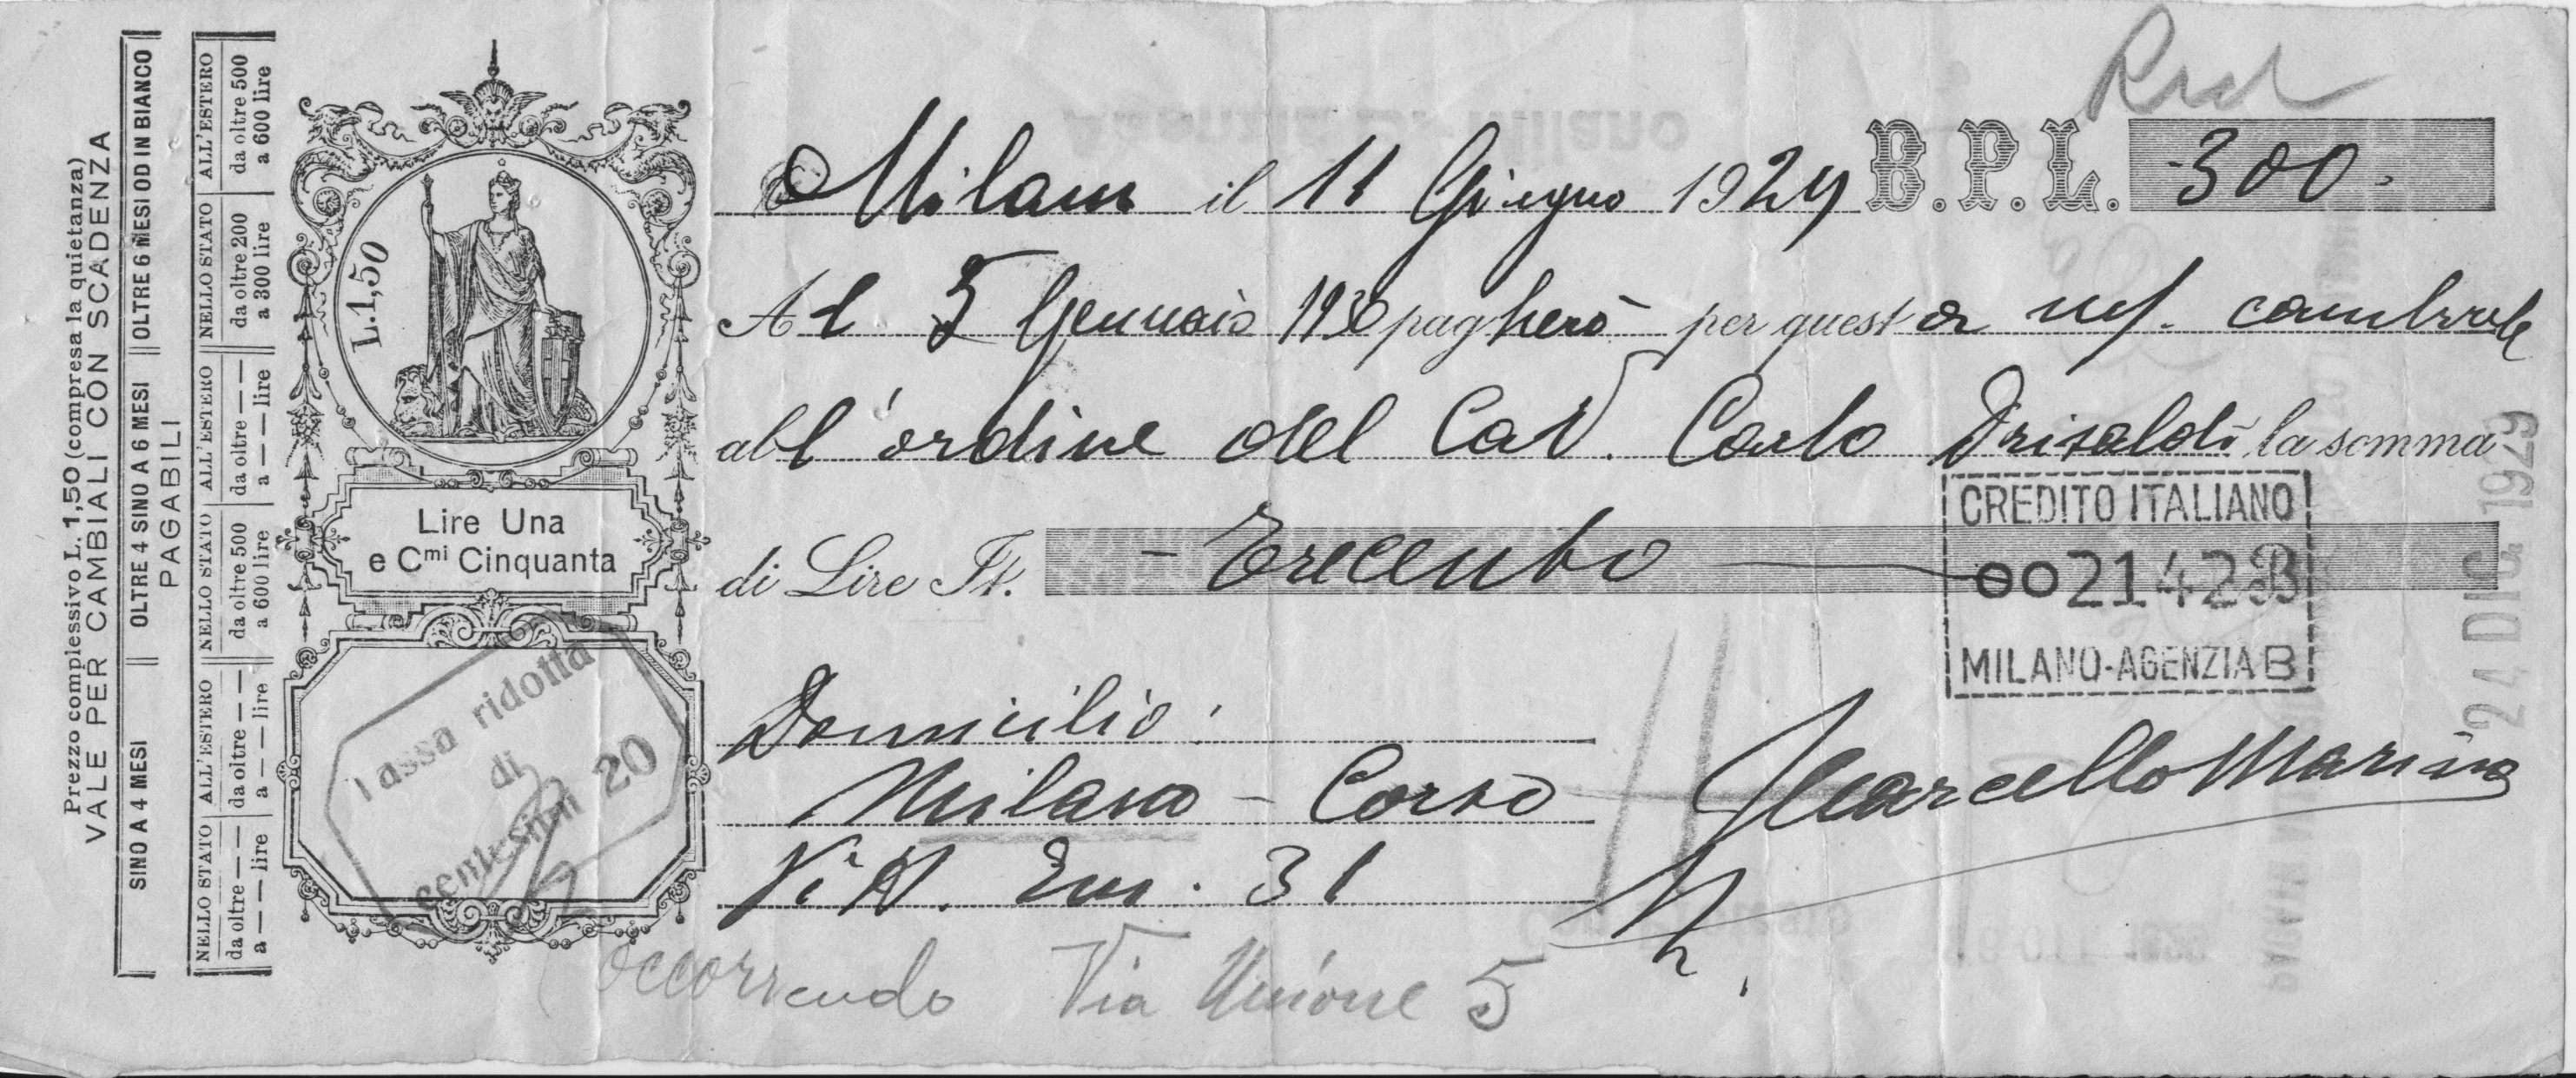 Prezzo complessivo L. 1,50 (compresa la quietanza)
VALE PER CAMBIALI CON SCADENZA
SINO A 4 MESI OLTRE 4 SINO A 6 MESI OLTRE 6 MESI OD IN BIANCO
PAGABILI
NELLO STATO ALL'ESTERO NELLO STATO ALL'ESTERO NELLO STATO ALL'ESTERO
da oltre — — da oltre — — da oltre 500 da oltre — — da oltre 200 da oltre 500
a — — lire a — — lire a 600 lire a — — lire a 300 lire a 600 lire
L.1,50
Lire Una
e Cmi Cinquanta
Tassa ridotta
di
centesimi 20
Milano il 11 Giugno 1929 B.P.L. -300-
Al 5 Gennaio 1930 pagherò per questa cambiale
all'ordine del Cav. Carlo la somma
di Lire It. - Trecento
CREDITO ITALIANO
002142
MILANO-AGENZIA B
24 DIC. 1929
Domicilio:
Milano - Corso
Vitt. Em. 31
Marcello Marino
occorrendo Via Unione 5